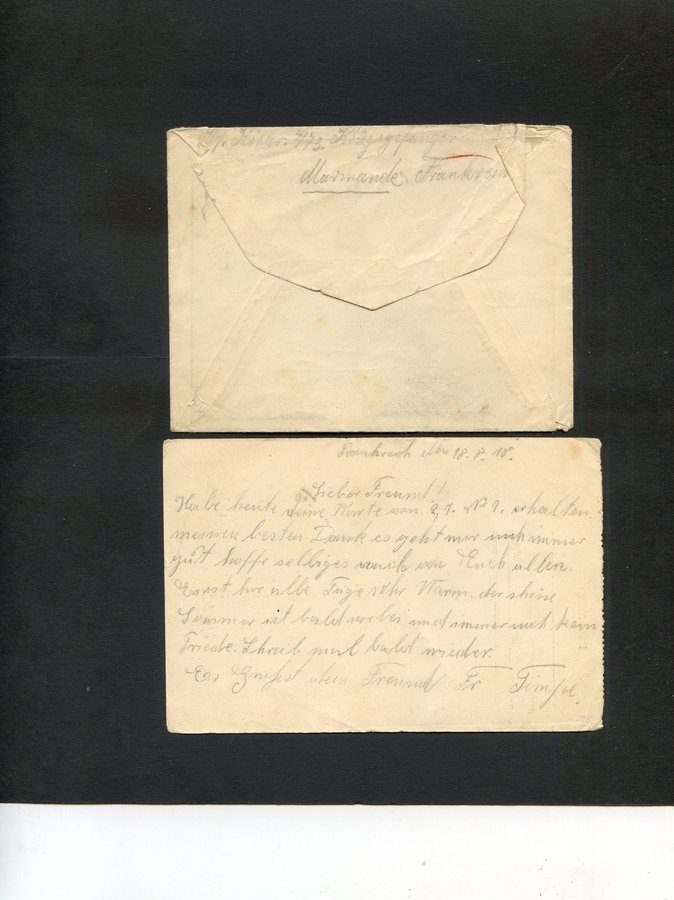 473. Kriegsgefangener
Marmande. Frankreich
Frankreich den 18.8.18.
Lieber Freund!
Habe heute deine Karte von 2.7. No 7. erhalten.
meinen besten Dank es geht mir noch immer
gut hoffe selbiges auch von Euch allen.
Es ist hir alle Tage sehr Warm. der shöne
Sommer ist bald vorbei und immer noch kein
Friede. Shreib mal bald wieder.
Es Grüßt dein Freund Fr Timpe.